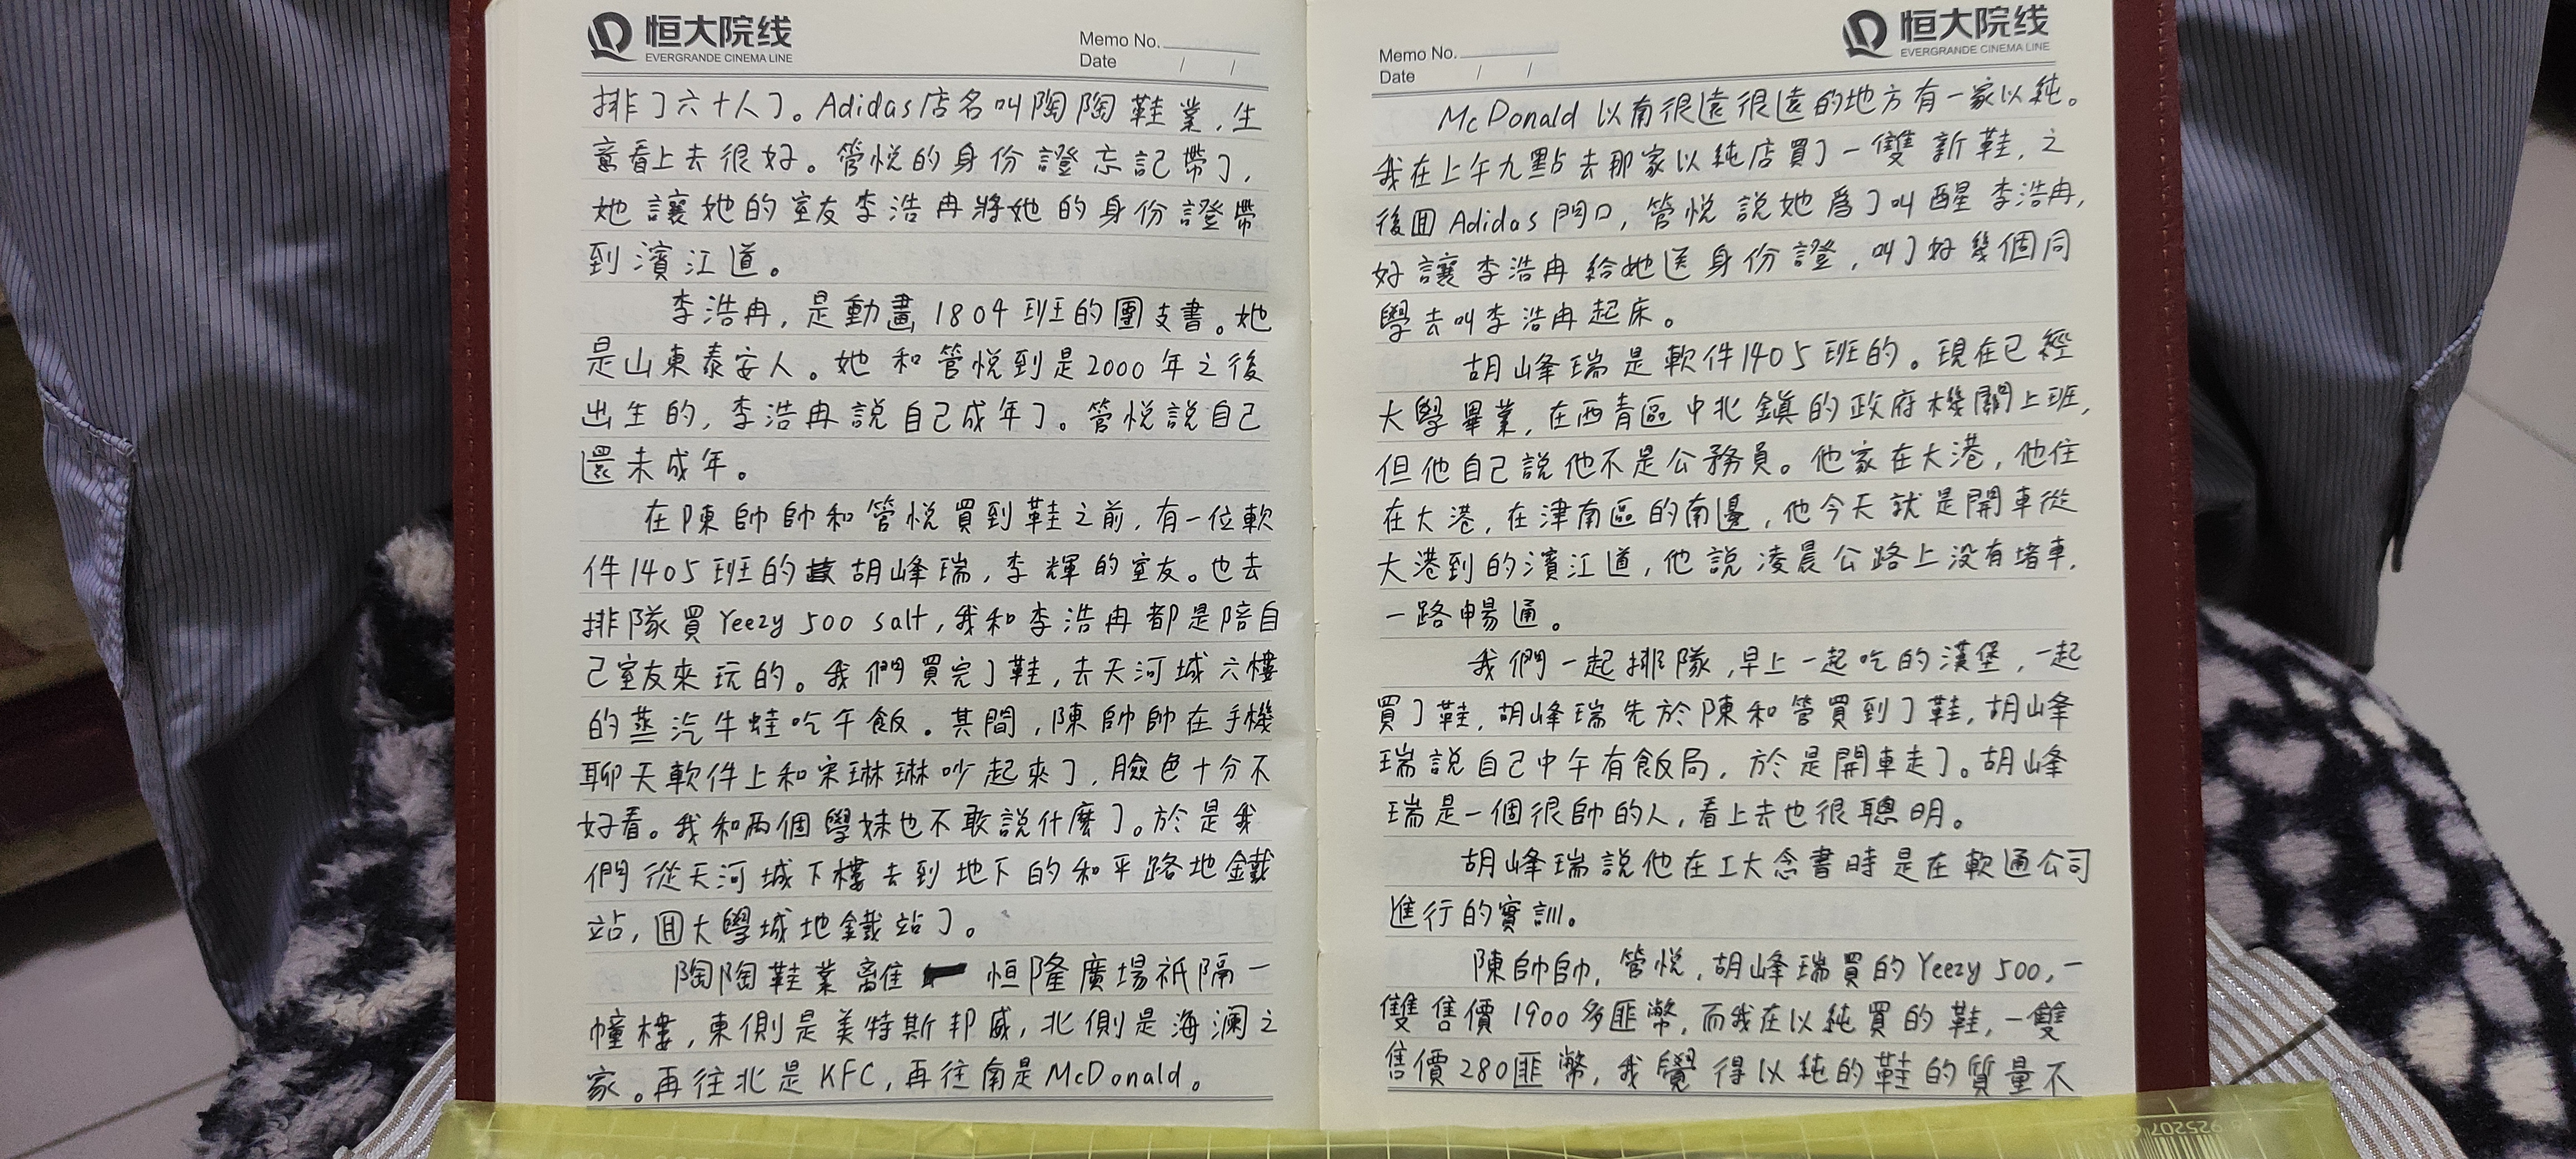 恒大院线
EVERGRANDE CINEMA LINE
Memo No.
Date / /
排了六十人了。Adidas店名叫陶陶鞋業,生
意看上去很好。管悦的身份證忘記帶了,
她讓她的室友李浩冉將她的身份證帶
到濱江道。
李浩冉,是動畫1804班的團支書。她
是山東泰安人。她和管悦到是2000年之後
出生的,李浩冉說自己成年了。管悦說自己
還未成年。
在陳帥帥和管悦買到鞋之前,有一位軟
件1405班的胡峰瑞,李輝的室友。也去
排隊買Yeezy 500 salt,我和李浩冉都是陪自
己室友來玩的。我們買完了鞋,去天河城六樓
的蒸汽牛蛙吃午飯。其間,陳帥帥在手機
聊天軟件上和宋琳琳吵起來了,臉色十分不
好看。我和两個學妹也不敢說什麼了。於是我
們從天河城下樓去到地下的和平路地鐵
站,囬大學城地鐵站了。
陶陶鞋業離恒隆廣場祇隔一
幢樓,東側是美特斯邦威,北側是海澜之
家。再往北是KFC,再往南是McDonald。
Memo No.
Date / /
恒大院线
EVERGRANDE CINEMA LINE
McDonald以南很遠很遠的地方有一家以純。
我在上午九點去那家以純店買了一雙新鞋,之
後囬Adidas門口,管悦說她爲了叫醒李浩冉,
好讓李浩冉給她送身份證,叫了好幾個同
學去叫李浩冉起床。
胡峰瑞是軟件1405班的。現在已經
大學畢業,在西青區中北鎮的政府機關上班,
但他自己說他不是公務員。他家在大港,他住
在大港,在津南區的南邊,他今天就是開車從
大港到的濱江道,他說凌晨公路上没有堵車,
一路暢通。
我們一起排隊,早上一起吃的漢堡,一起
買了鞋,胡峰瑞先於陳和管買到了鞋,胡峰
瑞說自己中午有飯局,於是開車走了。胡峰
瑞是一個很帥的人,看上去也很聰明。
胡峰瑞說他在工大念書時是在軟通公司
進行的實訓。
陳帥帥,管悦,胡峰瑞買的Yeezy 500,一
雙售價1900多匪幣,而我在以純買的鞋,一雙
售價280匪幣,我覺得以純的鞋的質量不